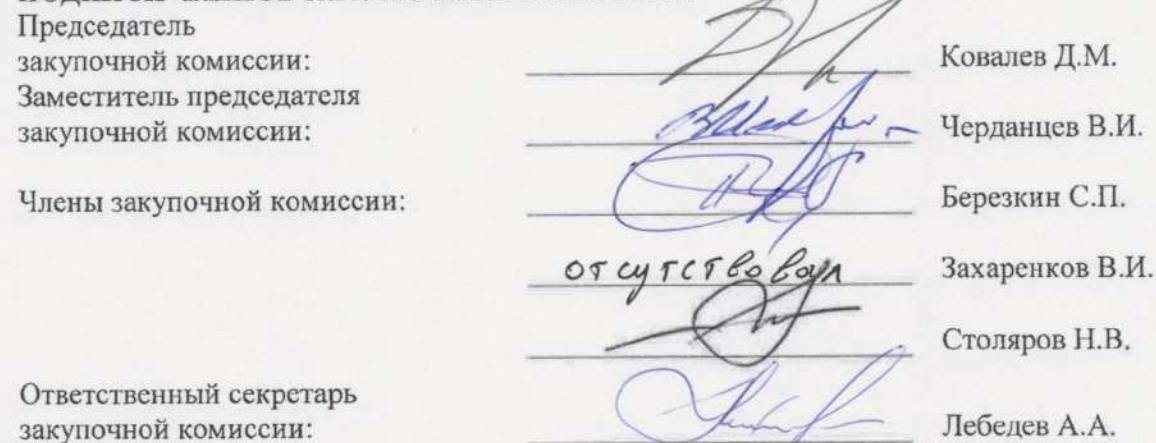 Председатель
закупочной комиссии: Ковалев Д.М.
Заместитель председателя
закупочной комиссии: Черданцев В.И.
Члены закупочной комиссии: Березкин С.П.
отсутствовал Захаренков В.И.
Столяров Н.В.
Ответственный секретарь
закупочной комиссии: Лебедев А.А.